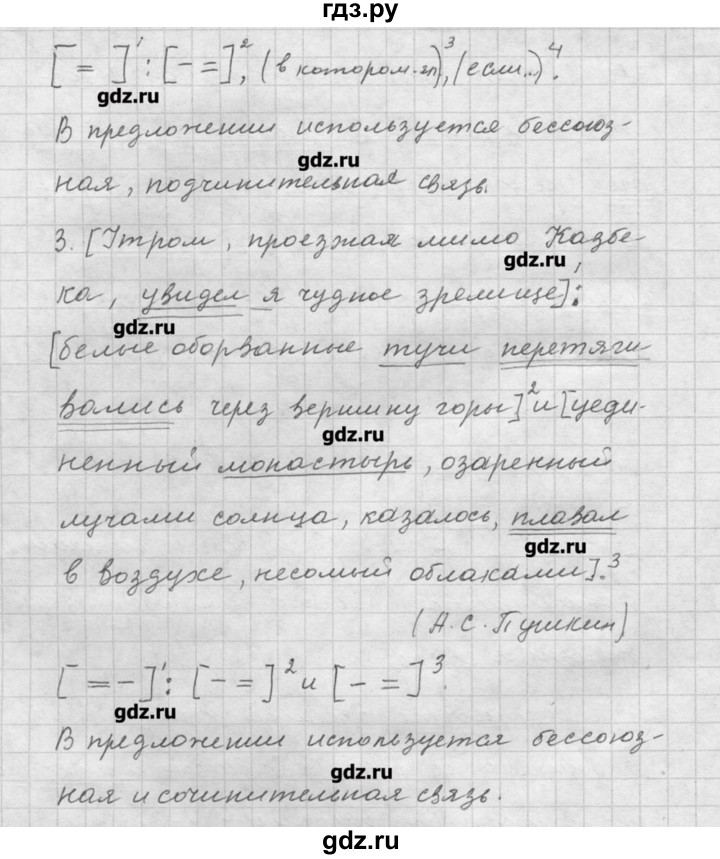 гдз.ру
[ = ]¹: [ - = ]², (в котором.гл)³, (если..)⁴.
gdz.ru
В предложении используется бессоюз-
gdz.ru
ная, подчинительная связь.
3. [Утром, проезжая мимо Казбе-
gdz.ru
ка, увидел я чудное зрелище]¹:
gdz.ru
[белые оборванные тучи перетяги-
вались через вершину горы]² и [уеди-
gdz.ru
ненный монастырь, озаренный
лучами солнца, казалось, плавал
gdz.ru
в воздухе, несомый облаками].³
(А.С.Пушкин)
[ = - ]¹: [ - = ]² и [ - = ]³.
gdz.ru
В предложении используется бессоюз-
gdz.ru
ная и сочинительная связь.
gdz.ru